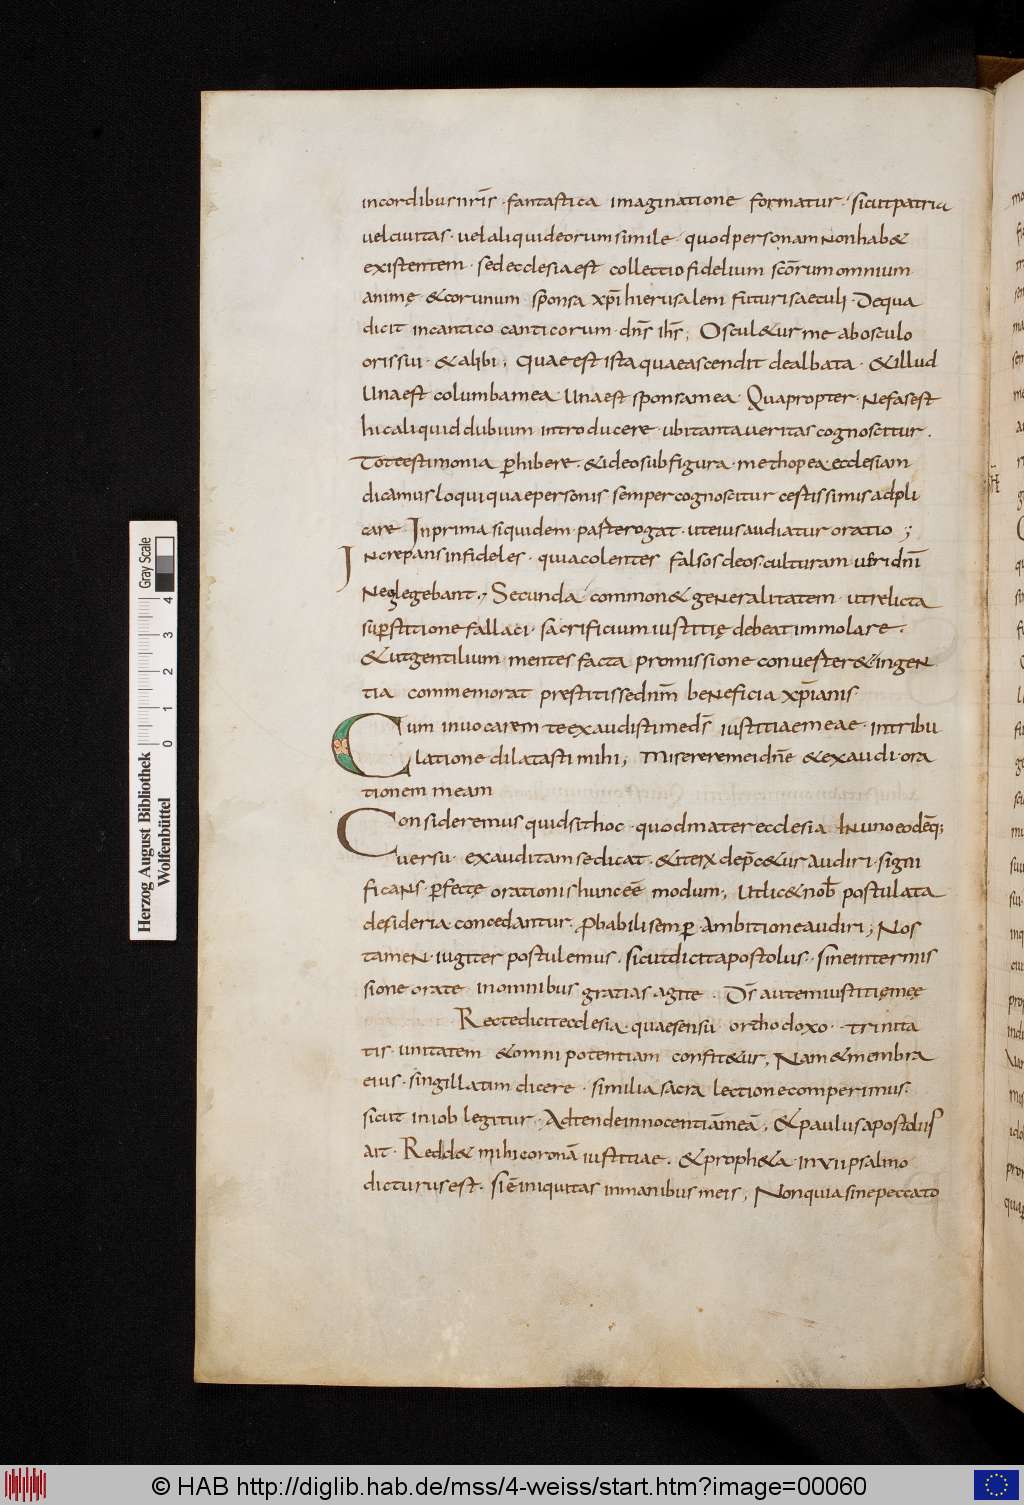 incordibus nr̄is · fantastica imaginatione formatur · sicut patria
vel civitas · vel aliquid eorum simile · quod personam non hab&
existentem · sed ecclesia est collectio fidelium sc̄orum omnium
animę & corunum sponsa xp̄i hierusalem futuri saeculi · De qua
dicit in cantico canticorum · dn̄s ih̄s; Oscul&ur me ab osculo
oris sui · & alibi; quae est ista quae ascendit dealbata · & illud
Una est columba mea Una est sponsa mea · Quapropter · Nefas est
hic aliquid dubium introducere · ubi tanta veritas cognoscitur .
Tot testimonia phibere · & ideo sub figura · methopea ecclesiam
dicamus loqui quae personis semper cognoscitur cestissimis adpli
care In prima siquidem · paste rogat · ut eius audiatur oratio ;
Increpans infideles · quia colentes falsos deos · culturam ueri dn̄i
Neglegebant ; Secunda common& generalitatem · ut relicta
sup̄stitione fallaci · sacrificium iustitię debeat immolare .
& ut gentilium mentes facta promissione convester& ingen
tia commemorat prestitisse dn̄m beneficia xp̄ianis ·
Cum invocarem te exaudisti me ds̄ iustitiae meae · in tribu
latione dilatasti mihi; Miserere mei dn̄e & exaudi · ora
tionem meam
Consideremus quid sit hoc · quod mater ecclesia In uno eodēq;
versu · exauditam se dicat · & iterx dep̄c&ur audiri · signi
ficans · p̄fectę orationis hunc eē modum; Ut lic& nob̄ postulata
desideria · concedantur · Phabili semp̄ · Ambitione audiri ; Nos
tamen · iugiter postulemus · sicut dicit apostolus · sine intermis
sione orate in omnibus gratias agite . Ds̄ autem iustitię meę
Recte dicit ecclesia · quae sensu orthodoxo · trinita
tis · unitatem & omnipotentiam confit&ur; Nam & membra
eius · singillatim dicere · similia sacra lectione comperimus ·
sicut in iob legitur · Adtende innocentiā meā ; & paulus apostolus
ait · Redd& mihi coronā iustitiae . & proph&a · in vii psalmo
dicturus est · Si ē iniquitas in manibus meis ; Non quia sine peccato
Herzog August Bibliothek
Wolfenbüttel
0 1 2 3 4
Gray Scale
© HAB http://diglib.hab.de/mss/4-weiss/start.htm?image=00060